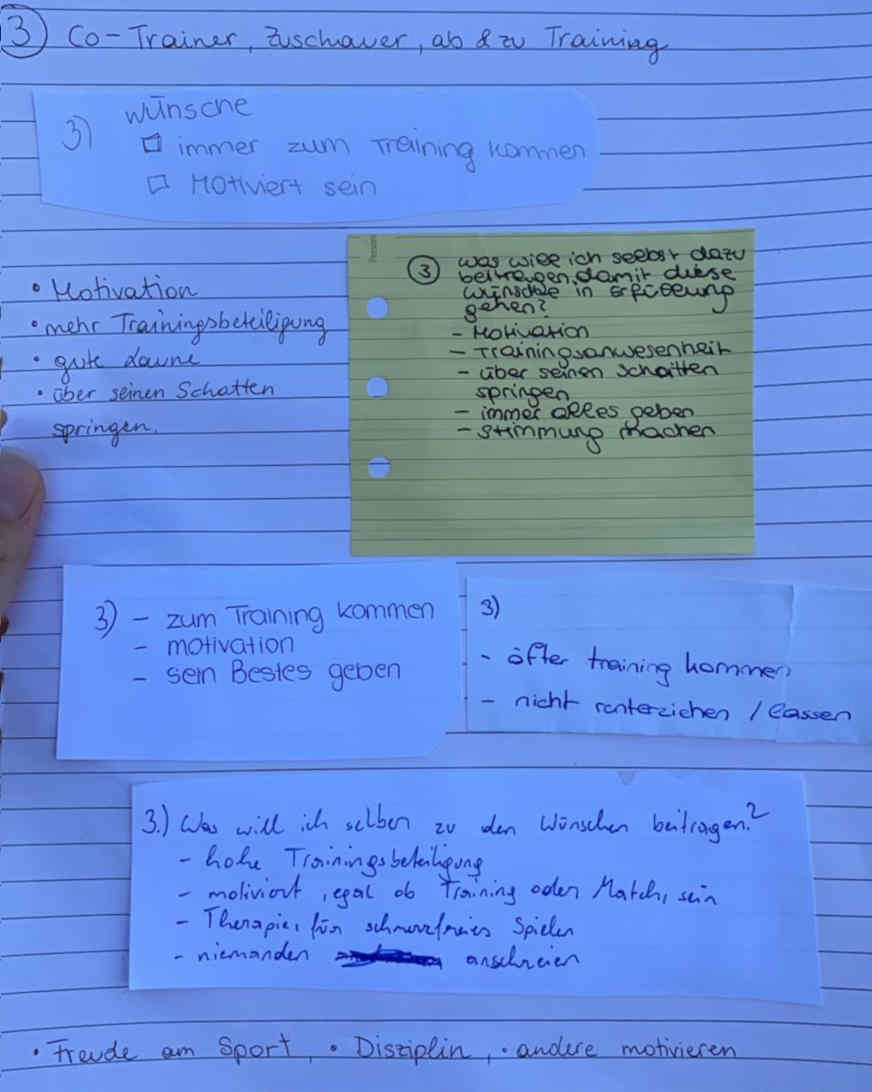 3 Co-Trainer, Zuschauer, ab & zu Training
3) wünsche
immer zum Training kommen
Motiviert sein
• Motivation
• mehr Trainingsbeteiligung
• gute Laune
• über seinen Schatten
springen.
3 was will ich selbst dazu
beitragen, damit diese
wünsche in Erfüllung
gehen?
- Motivation
- Trainingsanwesenheit
- über seinen Schatten
springen
- immer alles geben
- Stimmung machen
3) - zum Training kommen
- motivation
- sein Bestes geben
3)
- öfter training kommen
- nicht runterziehen / lassen
3.) Was will ich selber zu den Wünschen beitragen?
- hohe Trainingsbeteiligung
- motiviert, egal ob Training oder Match, sein
- Therapie, für schmerzfreies Spielen
- niemanden anschreien
• Freude am Sport, • Disziplin, • andere motivieren